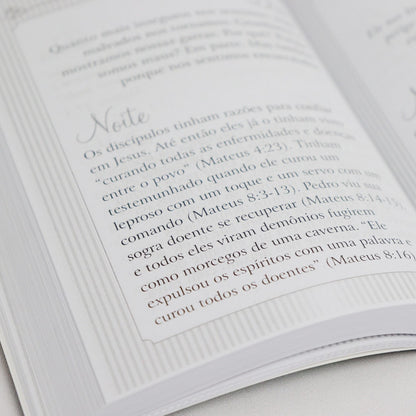 Quanto mais inseguros nos sentimos, mais
malvados nos tornamos.
mostramos nossas garras. Por quê?
somos maus? Em parte. Mas
porque nos sentimos
Noite
Os discípulos tinham razões para confiar
em Jesus. Até então eles já o tinham visto
“curando todas as enfermidades e doenças
entre o povo” (Mateus 4:23). Tinham
testemunhado quando ele curou um
leproso com um toque e um servo com um
comando (Mateus 8:3-13). Pedro viu sua
sogra doente se recuperar (Mateus 8:14-15)
e todos eles viram demônios fugirem
como morcegos de uma caverna. “Ele
expulsou os espíritos com uma palavra e
curou todos os doentes” (Mateus 8:16)